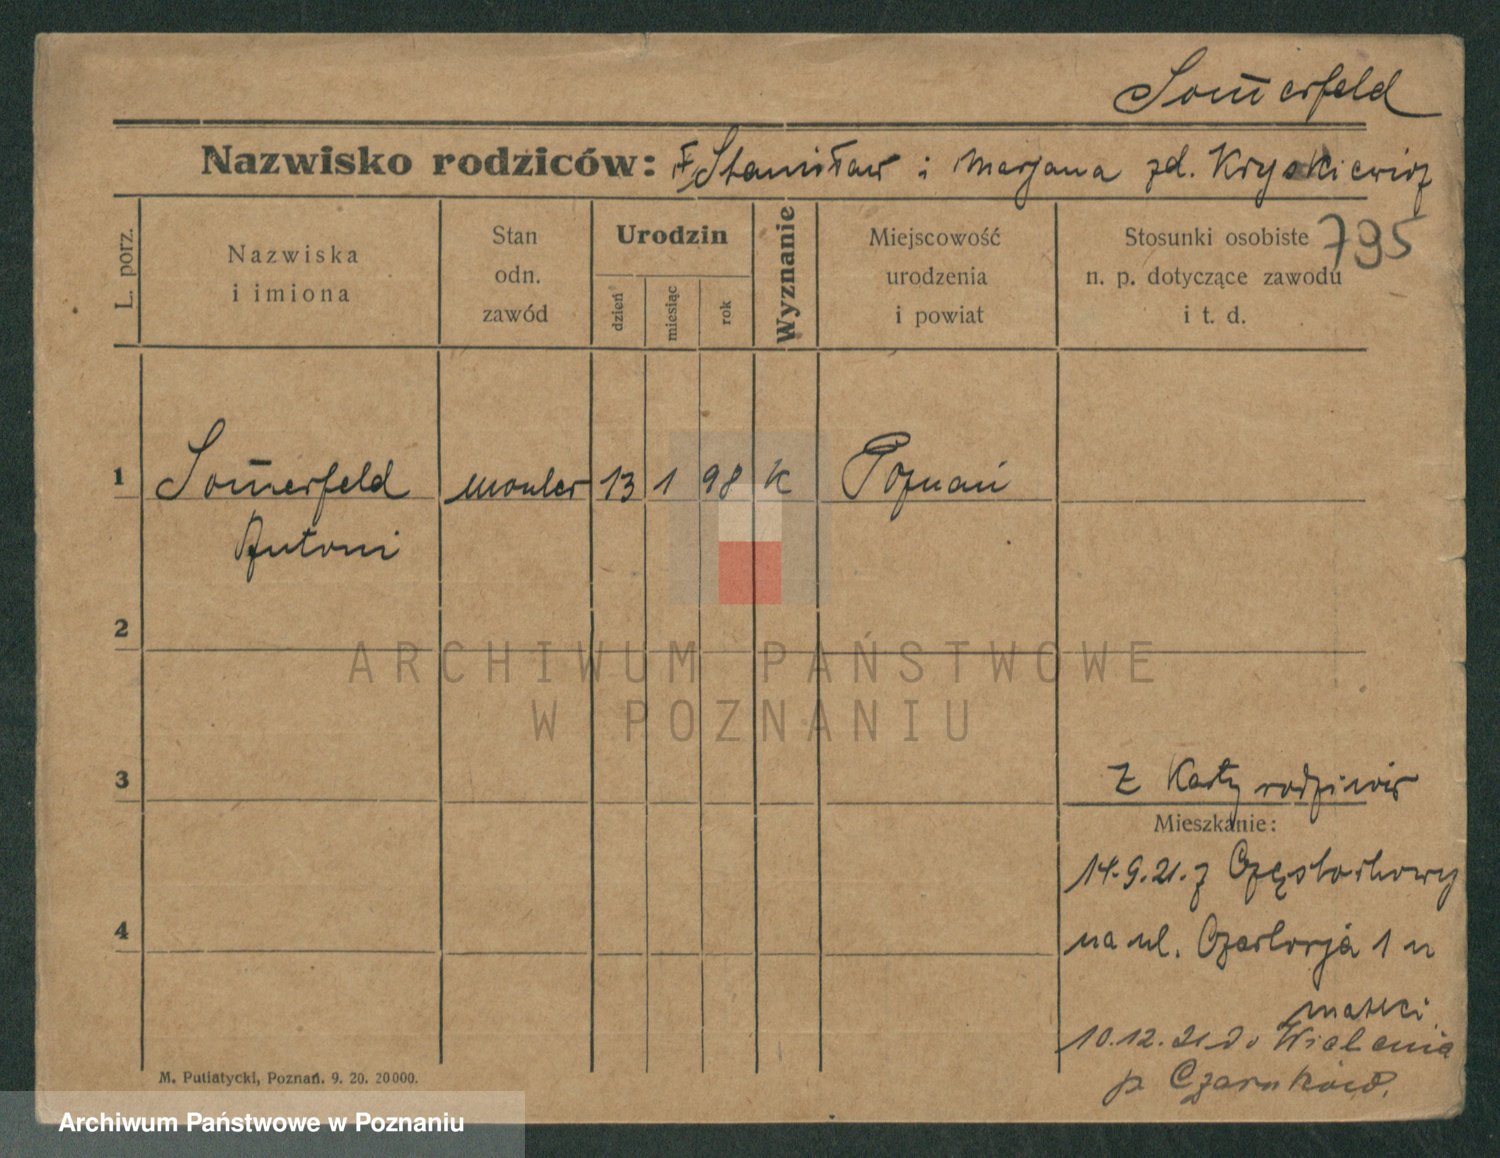 Som̅erfeld
Nazwisko rodziców: Stanisław i Marjana zd. Kryskiewicz
795
L. porz.
Nazwiska
i imiona
Stan
odn.
zawód
Urodzin
dzień
miesiąc
rok
Wyznanie
Miejscowość
urodzenia
i powiat
Stosunki osobiste
n. p. dotyczące zawodu
i t. d.
1 Som̅erfeld monter 13 1 98 K Poznań
Antoni
2
3
Z Karty rodziców
Mieszkanie:
14.9.21. z Częstochowy
4
na ul. Czartorja 1 u
matki
10.12.21 do Wielenia
p. Czarnków.
M. Putiatycki, Poznań. 9. 20. 20000.
ARCHIWUM PAŃSTWOWE
W POZNANIU
Archiwum Państwowe w Poznaniu